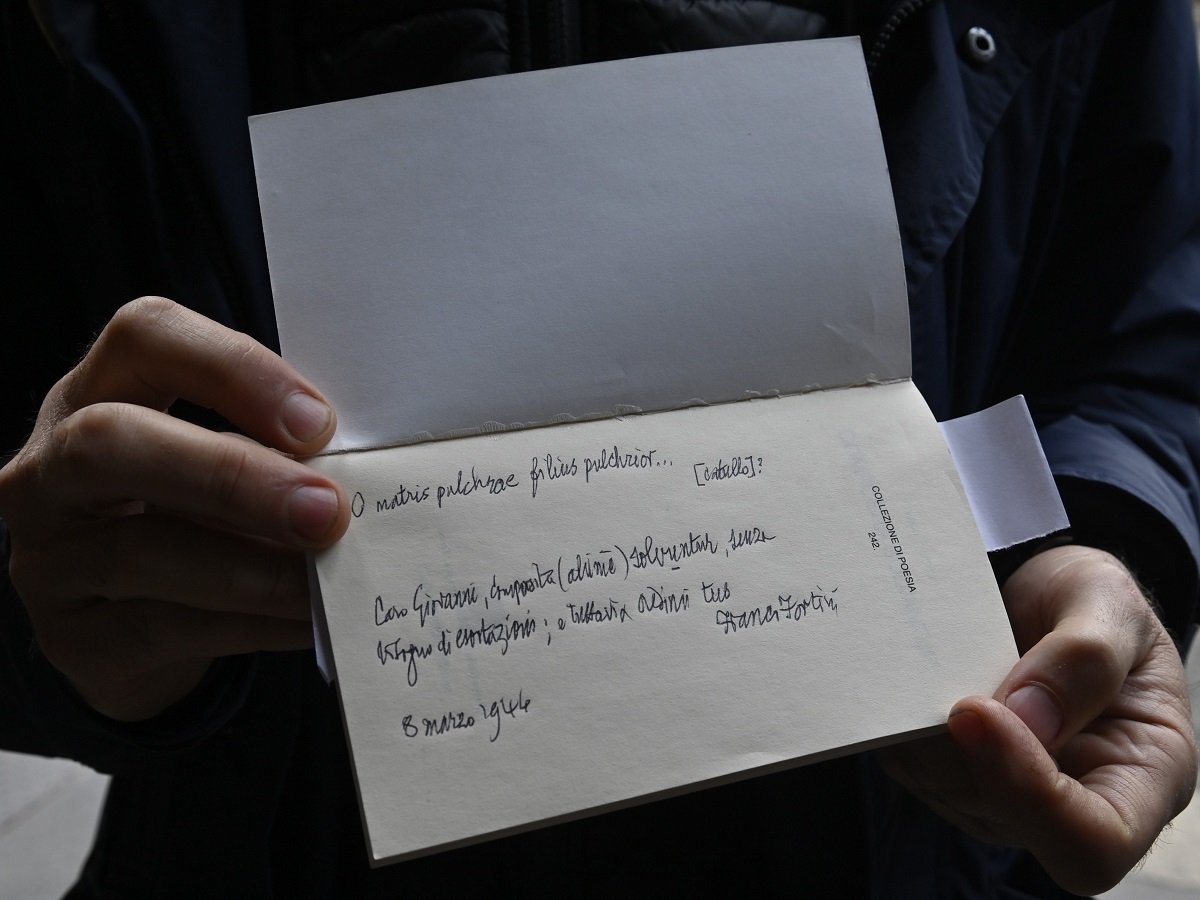 O matris pulchrae filius pulchrior... [Catullo]?
Caro Giovanni, composita (ahimè) solvuntur, senza
bisogno di esortazioni; e tuttavia tuo
Franco Fortini
8 marzo 1994
COLLEZIONE DI POESIA
242